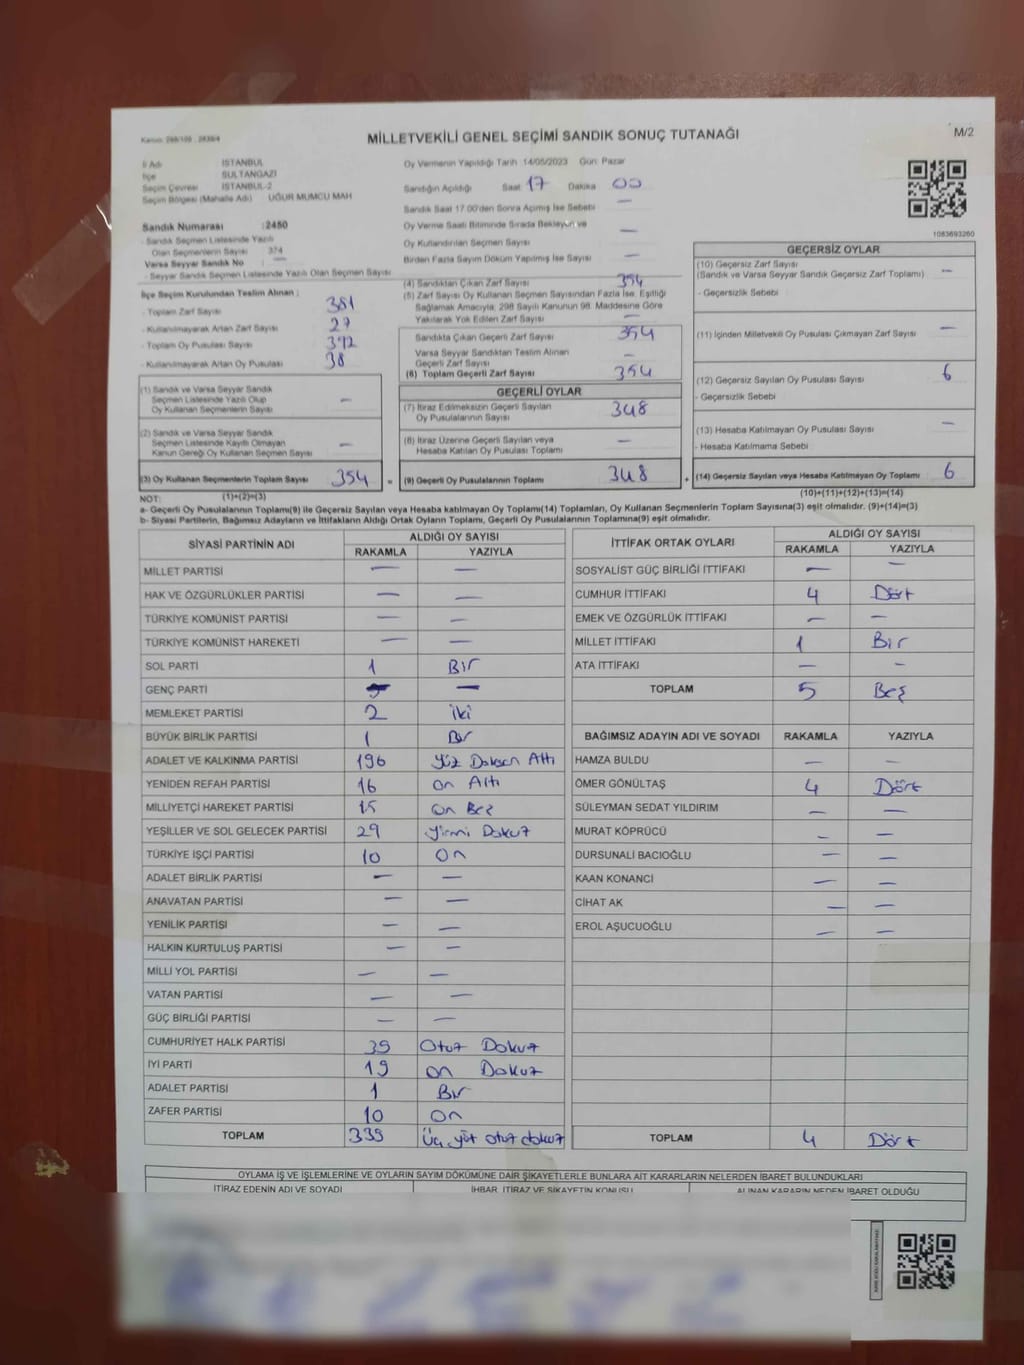 MİLLETVEKİLİ GENEL SEÇİMİ SANDIK SONUÇ TUTANAĞI
M/2
İl Adı İSTANBUL
İlçe SULTANGAZİ
Seçim Çevresi İSTANBUL-2
Seçim Bölgesi (Mahalle Adı) UĞUR MUMCU MAH
Sandık Numarası :2450
- Sandık Seçmen Listesinde Yazılı
Olan Seçmenlerin Sayısı 374
Varsa Seyyar Sandık No —
- Seyyar Sandık Seçmen Listesinde Yazılı Olan Seçmen Sayısı
İlçe Seçim Kurulundan Teslim Alınan :
- Toplam Zarf Sayısı 381
- Kullanılmayarak Artan Zarf Sayısı 27
- Toplam Oy Pusulası Sayısı 392
- Kullanılmayarak Artan Oy Pusulası 38
(1) Sandık ve Varsa Seyyar Sandık
Seçmen Listesinde Yazılı Olup
Oy Kullanan Seçmenlerin Sayısı —
(2) Sandık ve Varsa Seyyar Sandık
Seçmen Listesinde Kayıtlı Olmayan
Kanun Gereği Oy Kullanan Seçmen Sayısı —
(3) Oy Kullanan Seçmenlerin Toplam Sayısı 354 =
Oy Vermenin Yapıldığı Tarih :14/05/2023 Gün: Pazar
Sandığın Açıldığı Saat 17 Dakika 00
Sandık Saat 17.00'den Sonra Açılmış İse Sebebi —
Oy Verme Saati Bitiminde Sırada Bekleyen ve
Oy Kullandırılan Seçmen Sayısı —
Birden Fazla Sayım Döküm Yapılmış İse Sayısı —
(4) Sandıktan Çıkan Zarf Sayısı 354
(5) Zarf Sayısı Oy Kullanan Seçmen Sayısından Fazla İse, Eşitliği
Sağlamak Amacıyla; 298 Sayılı Kanunun 98. Maddesine Göre
Yakılarak Yok Edilen Zarf Sayısı —
Sandıkta Çıkan Geçerli Zarf Sayısı 354
Varsa Seyyar Sandıktan Teslim Alınan
Geçerli Zarf Sayısı —
(6) Toplam Geçerli Zarf Sayısı 354
GEÇERLİ OYLAR
(7) İtiraz Edilmeksizin Geçerli Sayılan
Oy Pusulalarının Sayısı 348
(8) İtiraz Üzerine Geçerli Sayılan veya
Hesaba Katılan Oy Pusulası Toplamı —
(9) Geçerli Oy Pusulalarının Toplamı 348 +
1083693260
GEÇERSİZ OYLAR
(10) Geçersiz Zarf Sayısı
(Sandık ve Varsa Seyyar Sandık Geçersiz Zarf Toplamı) —
- Geçersizlik Sebebi
(11) İçinden Milletvekili Oy Pusulası Çıkmayan Zarf Sayısı —
(12) Geçersiz Sayılan Oy Pusulası Sayısı 6
- Geçersizlik Sebebi
(13) Hesaba Katılmayan Oy Pusulası Sayısı —
- Hesaba Katılmama Sebebi
(14) Geçersiz Sayılan veya Hesaba Katılmayan Oy Toplamı 6
NOT: (1)+(2)=(3) (10)+(11)+(12)+(13)=(14)
a- Geçerli Oy Pusulalarının Toplamı(9) ile Geçersiz Sayılan veya Hesaba katılmayan Oy Toplamı(14) Toplamları, Oy Kullanan Seçmenlerin Toplam Sayısına(3) eşit olmalıdır. (9)+(14)=(3)
b- Siyasi Partilerin, Bağımsız Adayların ve İttifakların Aldığı Ortak Oyların Toplamı, Geçerli Oy Pusulalarının Toplamına(9) eşit olmalıdır.
SİYASİ PARTİNİN ADI ALDIĞI OY SAYISI
RAKAMLA YAZIYLA
MİLLET PARTİSİ — —
HAK VE ÖZGÜRLÜKLER PARTİSİ — —
TÜRKİYE KOMÜNİST PARTİSİ — —
TÜRKİYE KOMÜNİST HAREKETİ — —
SOL PARTİ 1 Bir
GENÇ PARTİ —
MEMLEKET PARTİSİ 2 iki
BÜYÜK BİRLİK PARTİSİ 1 Bir
ADALET VE KALKINMA PARTİSİ 196 Yüz Doksan Altı
YENİDEN REFAH PARTİSİ 16 on Altı
MİLLİYETÇİ HAREKET PARTİSİ 15 on Beş
YEŞİLLER VE SOL GELECEK PARTİSİ 29 yirmi Dokuz
TÜRKİYE İŞÇİ PARTİSİ 10 On
ADALET BİRLİK PARTİSİ — —
ANAVATAN PARTİSİ — —
YENİLİK PARTİSİ — —
HALKIN KURTULUŞ PARTİSİ — —
MİLLİ YOL PARTİSİ — —
VATAN PARTİSİ — —
GÜÇ BİRLİĞİ PARTİSİ — —
CUMHURİYET HALK PARTİSİ 39 Otuz Dokuz
İYİ PARTİ 19 on Dokuz
ADALET PARTİSİ 1 Bir
ZAFER PARTİSİ 10 On
TOPLAM 339 Üç yüz otuz dokuz
İTTİFAK ORTAK OYLARI ALDIĞI OY SAYISI
RAKAMLA YAZIYLA
SOSYALİST GÜÇ BİRLİĞİ İTTİFAKI — —
CUMHUR İTTİFAKI 4 Dört
EMEK VE ÖZGÜRLÜK İTTİFAKI — —
MİLLET İTTİFAKI 1 Bir
ATA İTTİFAKI — —
TOPLAM 5 Beş
BAĞIMSIZ ADAYIN ADI VE SOYADI RAKAMLA YAZIYLA
HAMZA BULDU — —
ÖMER GÖNÜLTAŞ 4 Dört
SÜLEYMAN SEDAT YILDIRIM — —
MURAT KÖPRÜCÜ — —
DURSUNALİ BACIOĞLU — —
KAAN KONANCİ — —
CİHAT AK — —
EROL AŞUCUOĞLU — —
TOPLAM 4 Dört
OYLAMA İŞ VE İŞLEMLERİNE VE OYLARIN SAYIM DÖKÜMÜNE DAİR ŞİKAYETLERLE BUNLARA AİT KARARLARIN NELERDEN İBARET BULUNDUKLARI
İTİRAZ EDENİN ADI VE SOYADI İHBAR, İTİRAZ VE ŞİKAYETİN KONUSU ALINAN KARARIN NEDEN İBARET OLDUĞU